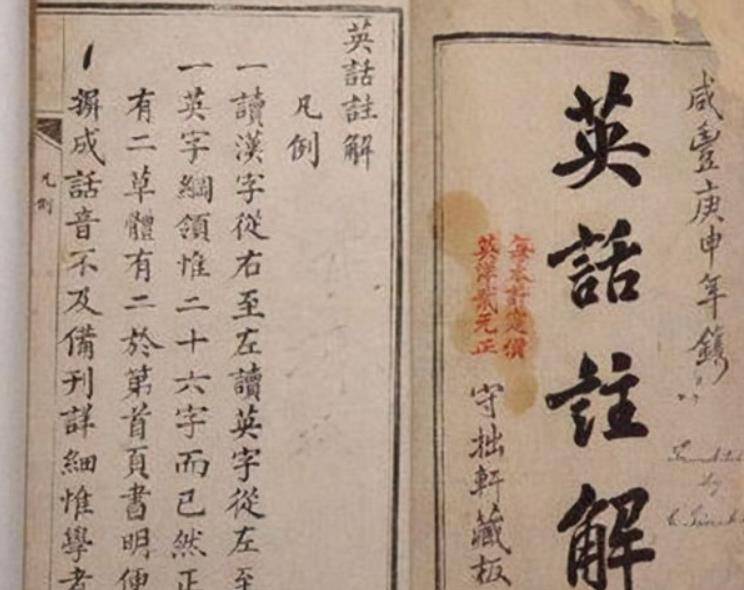 咸豐庚申年鐫
by
英話註解
每本計定價
英洋貳元正
守拙軒藏板
英話註解
凡例
一讀漢字從右至左讀英字從左至
一英字綱領惟二十六字而已然正
有二草體有二於第首頁書明便
一摒成話音不及備刊詳細惟學者
凡例